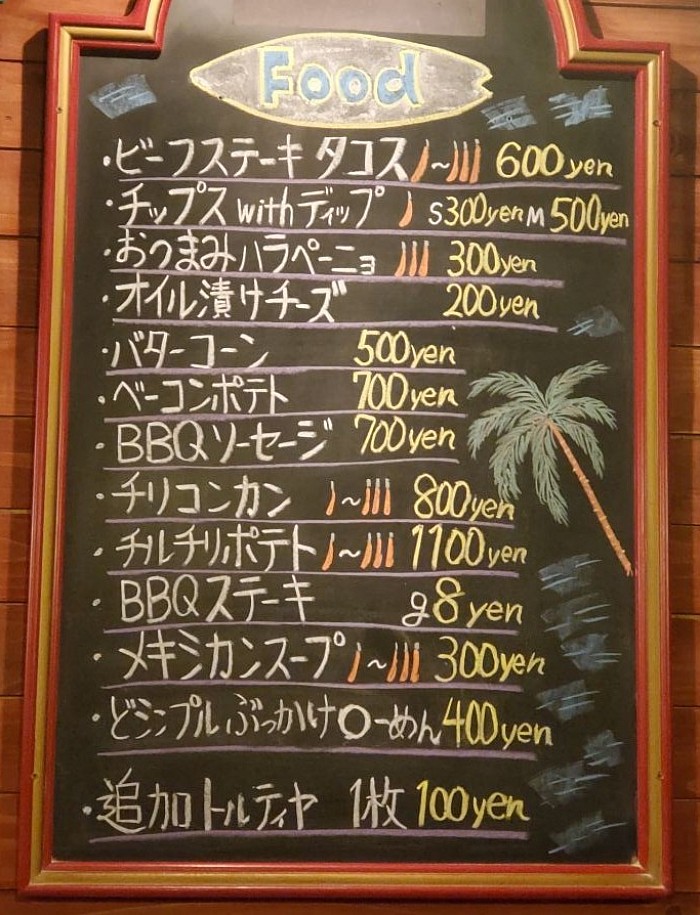 Food
・ビーフステーキ タコス ~ 600yen
・チップス withディップ S300yen M500yen
・おつまみハラペーニョ 300yen
・オイル漬けチーズ 200yen
・バターコーン 500yen
・ベーコンポテト 700yen
・BBQソーセージ 700yen
・チリコンカン ~ 800yen
・チルチリポテト ~ 1100yen
・BBQステーキ g8yen
・メキシカンスープ ~ 300yen
・どシンプルぶっかけ〇ーめん400yen
・追加トルティヤ 1枚 100yen